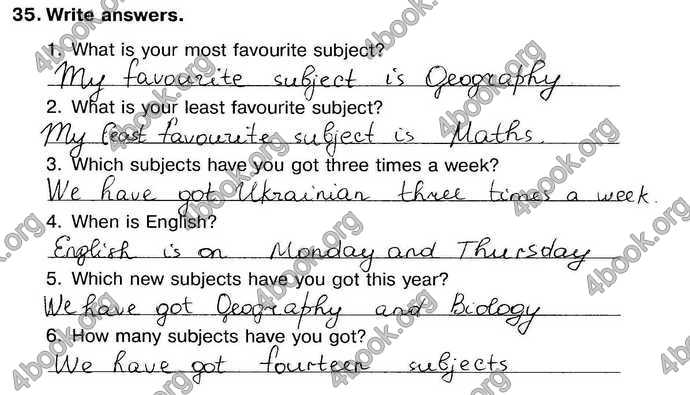 35. Write answers.
1. What is your most favourite subject?
My favourite subject is Geography
2. What is your least favourite subject?
My least favourite subject is Maths.
3. Which subjects have you got three times a week?
We have got Ukrainian three times a week.
4. When is English?
English is on Monday and Thursday
5. Which new subjects have you got this year?
We have got Geography and Biology
6. How many subjects have you got?
We have got fourteen subjects
4book.org
4book.org
4book.org
4book.org
4book.org
4book.org
4book.org
4book.org
4book.org
4book.org
4book.org